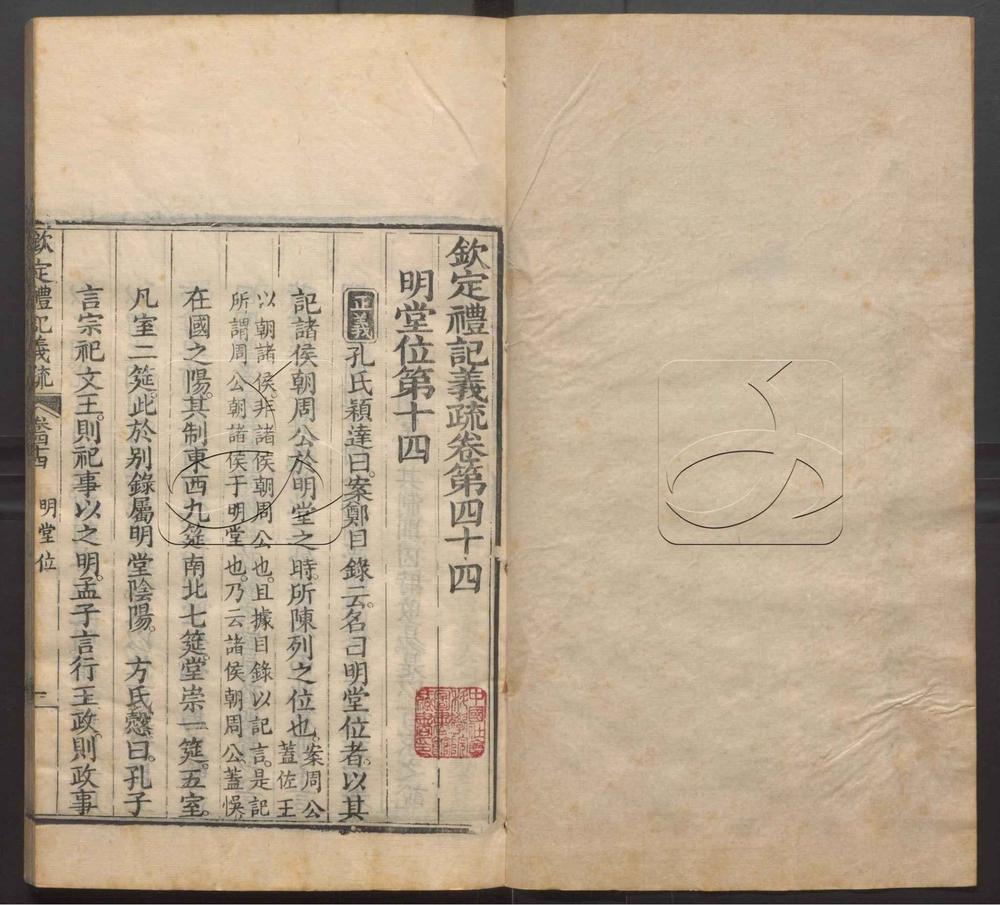 欽定禮記義疏卷第四十四
明堂位第十四
正義 孔氏穎達曰。案鄭目錄云。名曰明堂位者。以其
記諸侯朝周公於明堂之時。所陳列之位也。案周公
蓋佐王
以朝諸侯。非諸侯朝周公也。且據目錄以記言。是記
所謂周公朝諸侯于明堂也。乃云諸侯朝周公。蓋悞。
在國之陽。其制東西九筵南北七筵。堂崇一筵。五室。
凡室二筵。此於别錄屬明堂陰陽。 方氏慤曰。孔子
言宗祀文王。則祀事以之明。孟子言行王政。則政事
欽定禮記義疏
明堂位